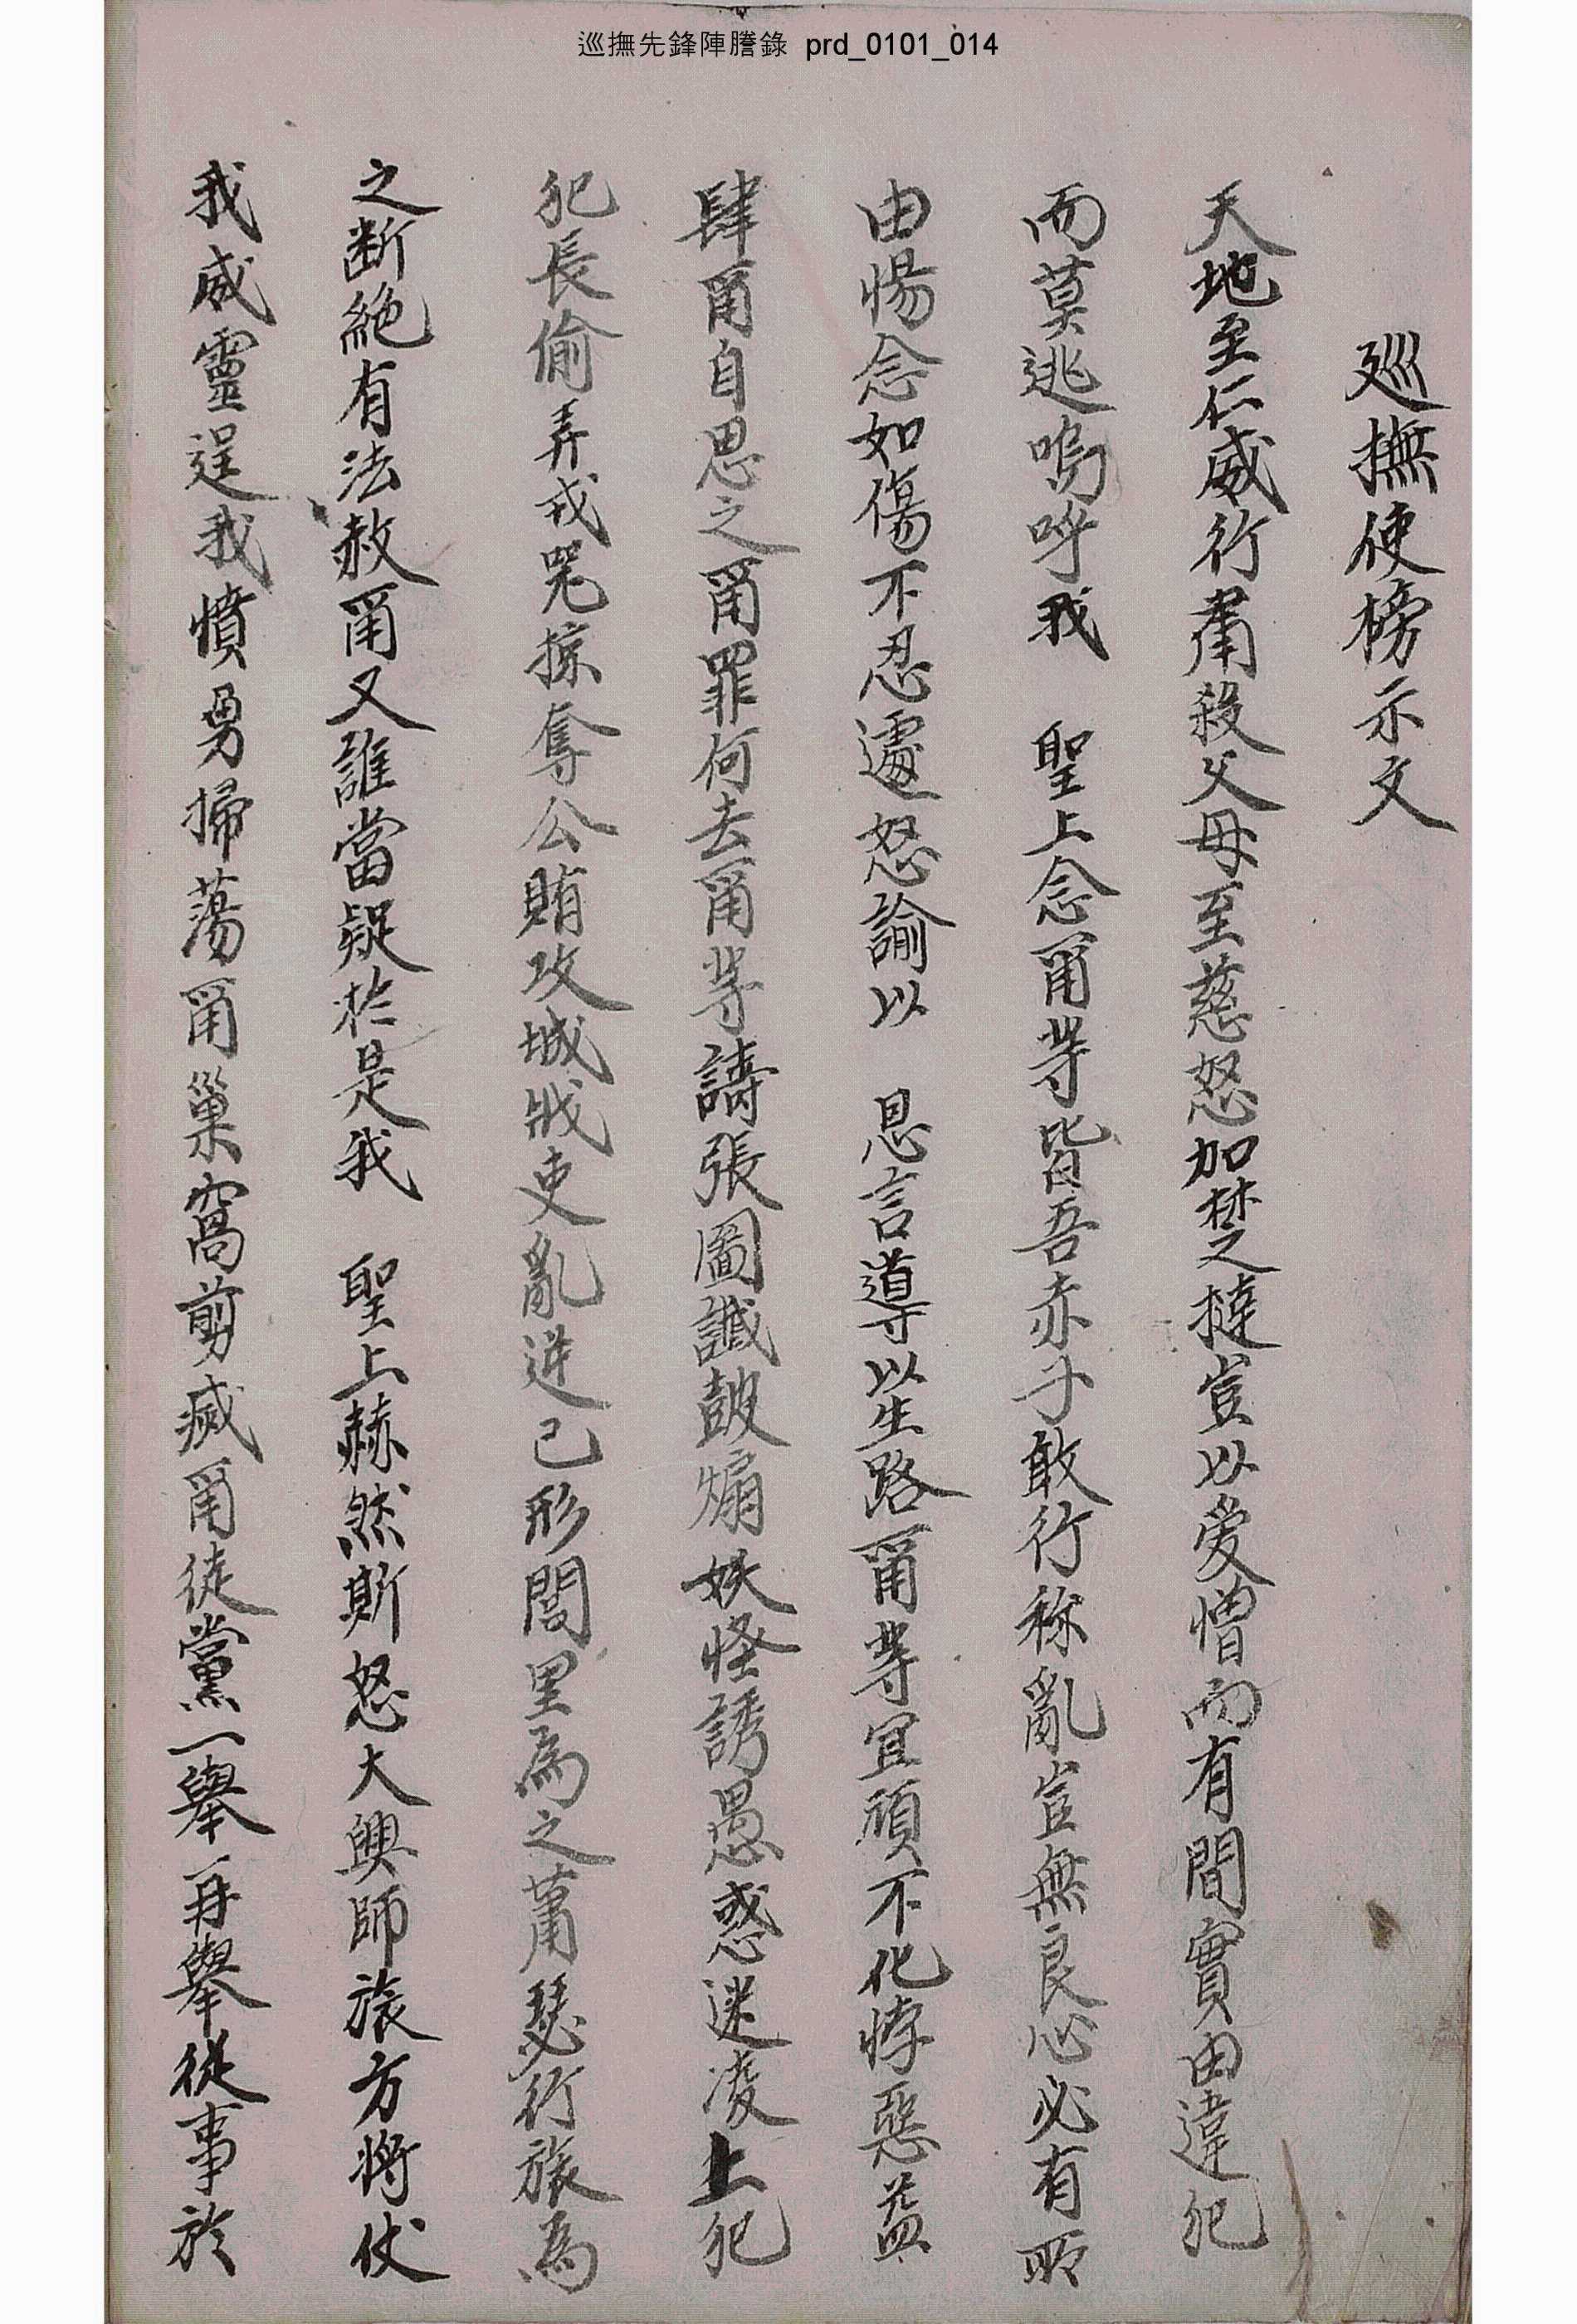 巡撫先鋒陣謄錄 prd_0101_014
廵撫使榜示文
天地至仁威行肅殺父母至慈怒加楚撻豈以愛憎而有間實由違犯
而莫逃嗚呼我 聖上念爾等皆吾赤子敢行称亂豈無良心必有所
由惕念如傷不忍遽怒諭以 恩言導以生路爾等冝頑不化悖惡益
肆爾自思之爾罪何去爾等譸張圖讖皷煽妖怪誘愚惑迷凌上犯
犯長偷弄戎兇掠奪公賄攻城戕吏亂迸已形閭里為之蕭瑟行旅為
之断絶有法赦爾又誰當疑於是我 聖上赫然斯怒大興師旅方將仗
我威靈逞我憤勇掃蕩爾巢窩剪滅爾徒黨一舉再舉從事於